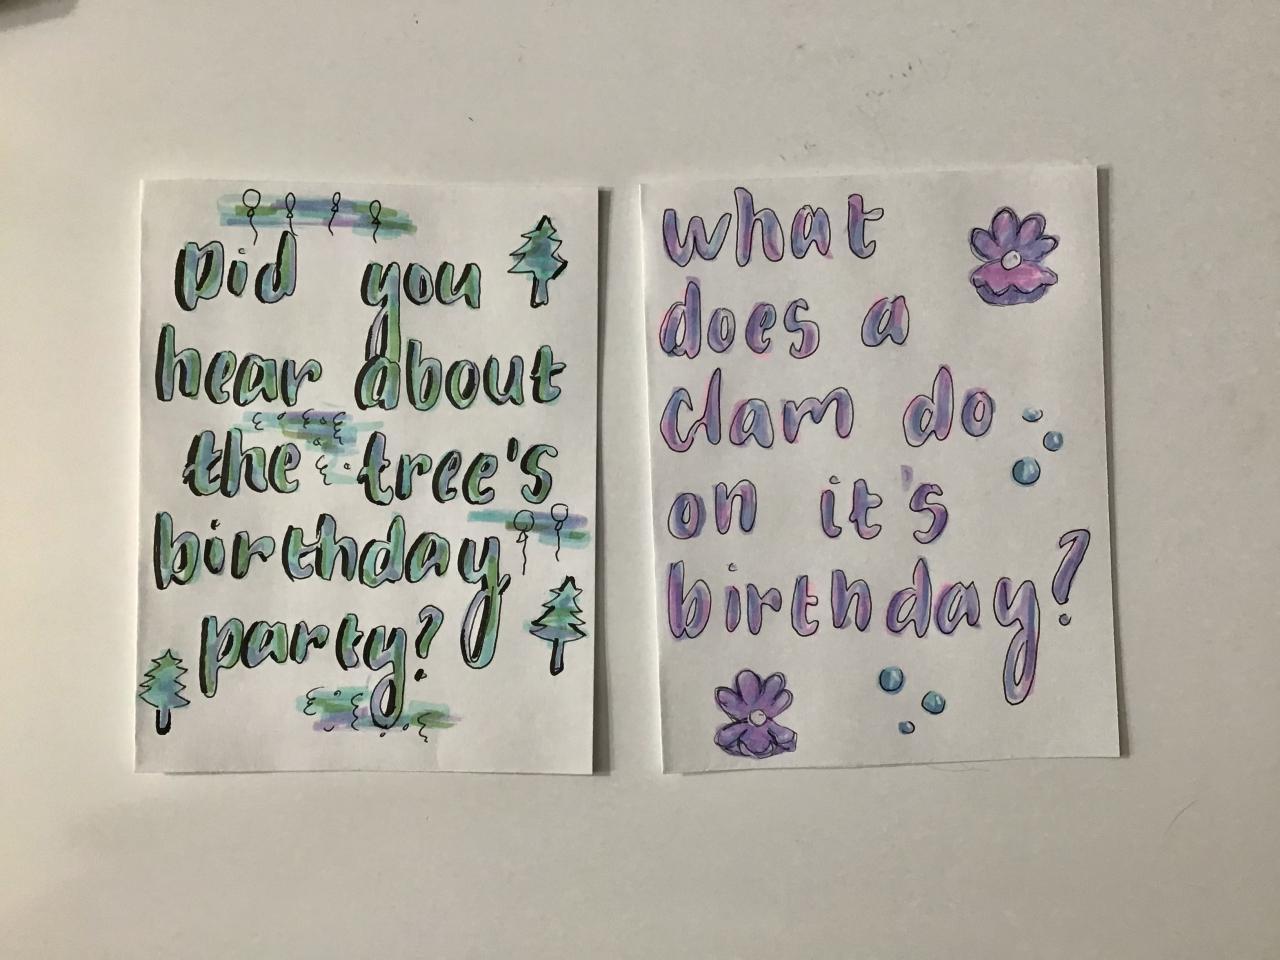 Did you
hear about
the tree's
birthday
party?
what
does a
clam do
on it's
birthday?